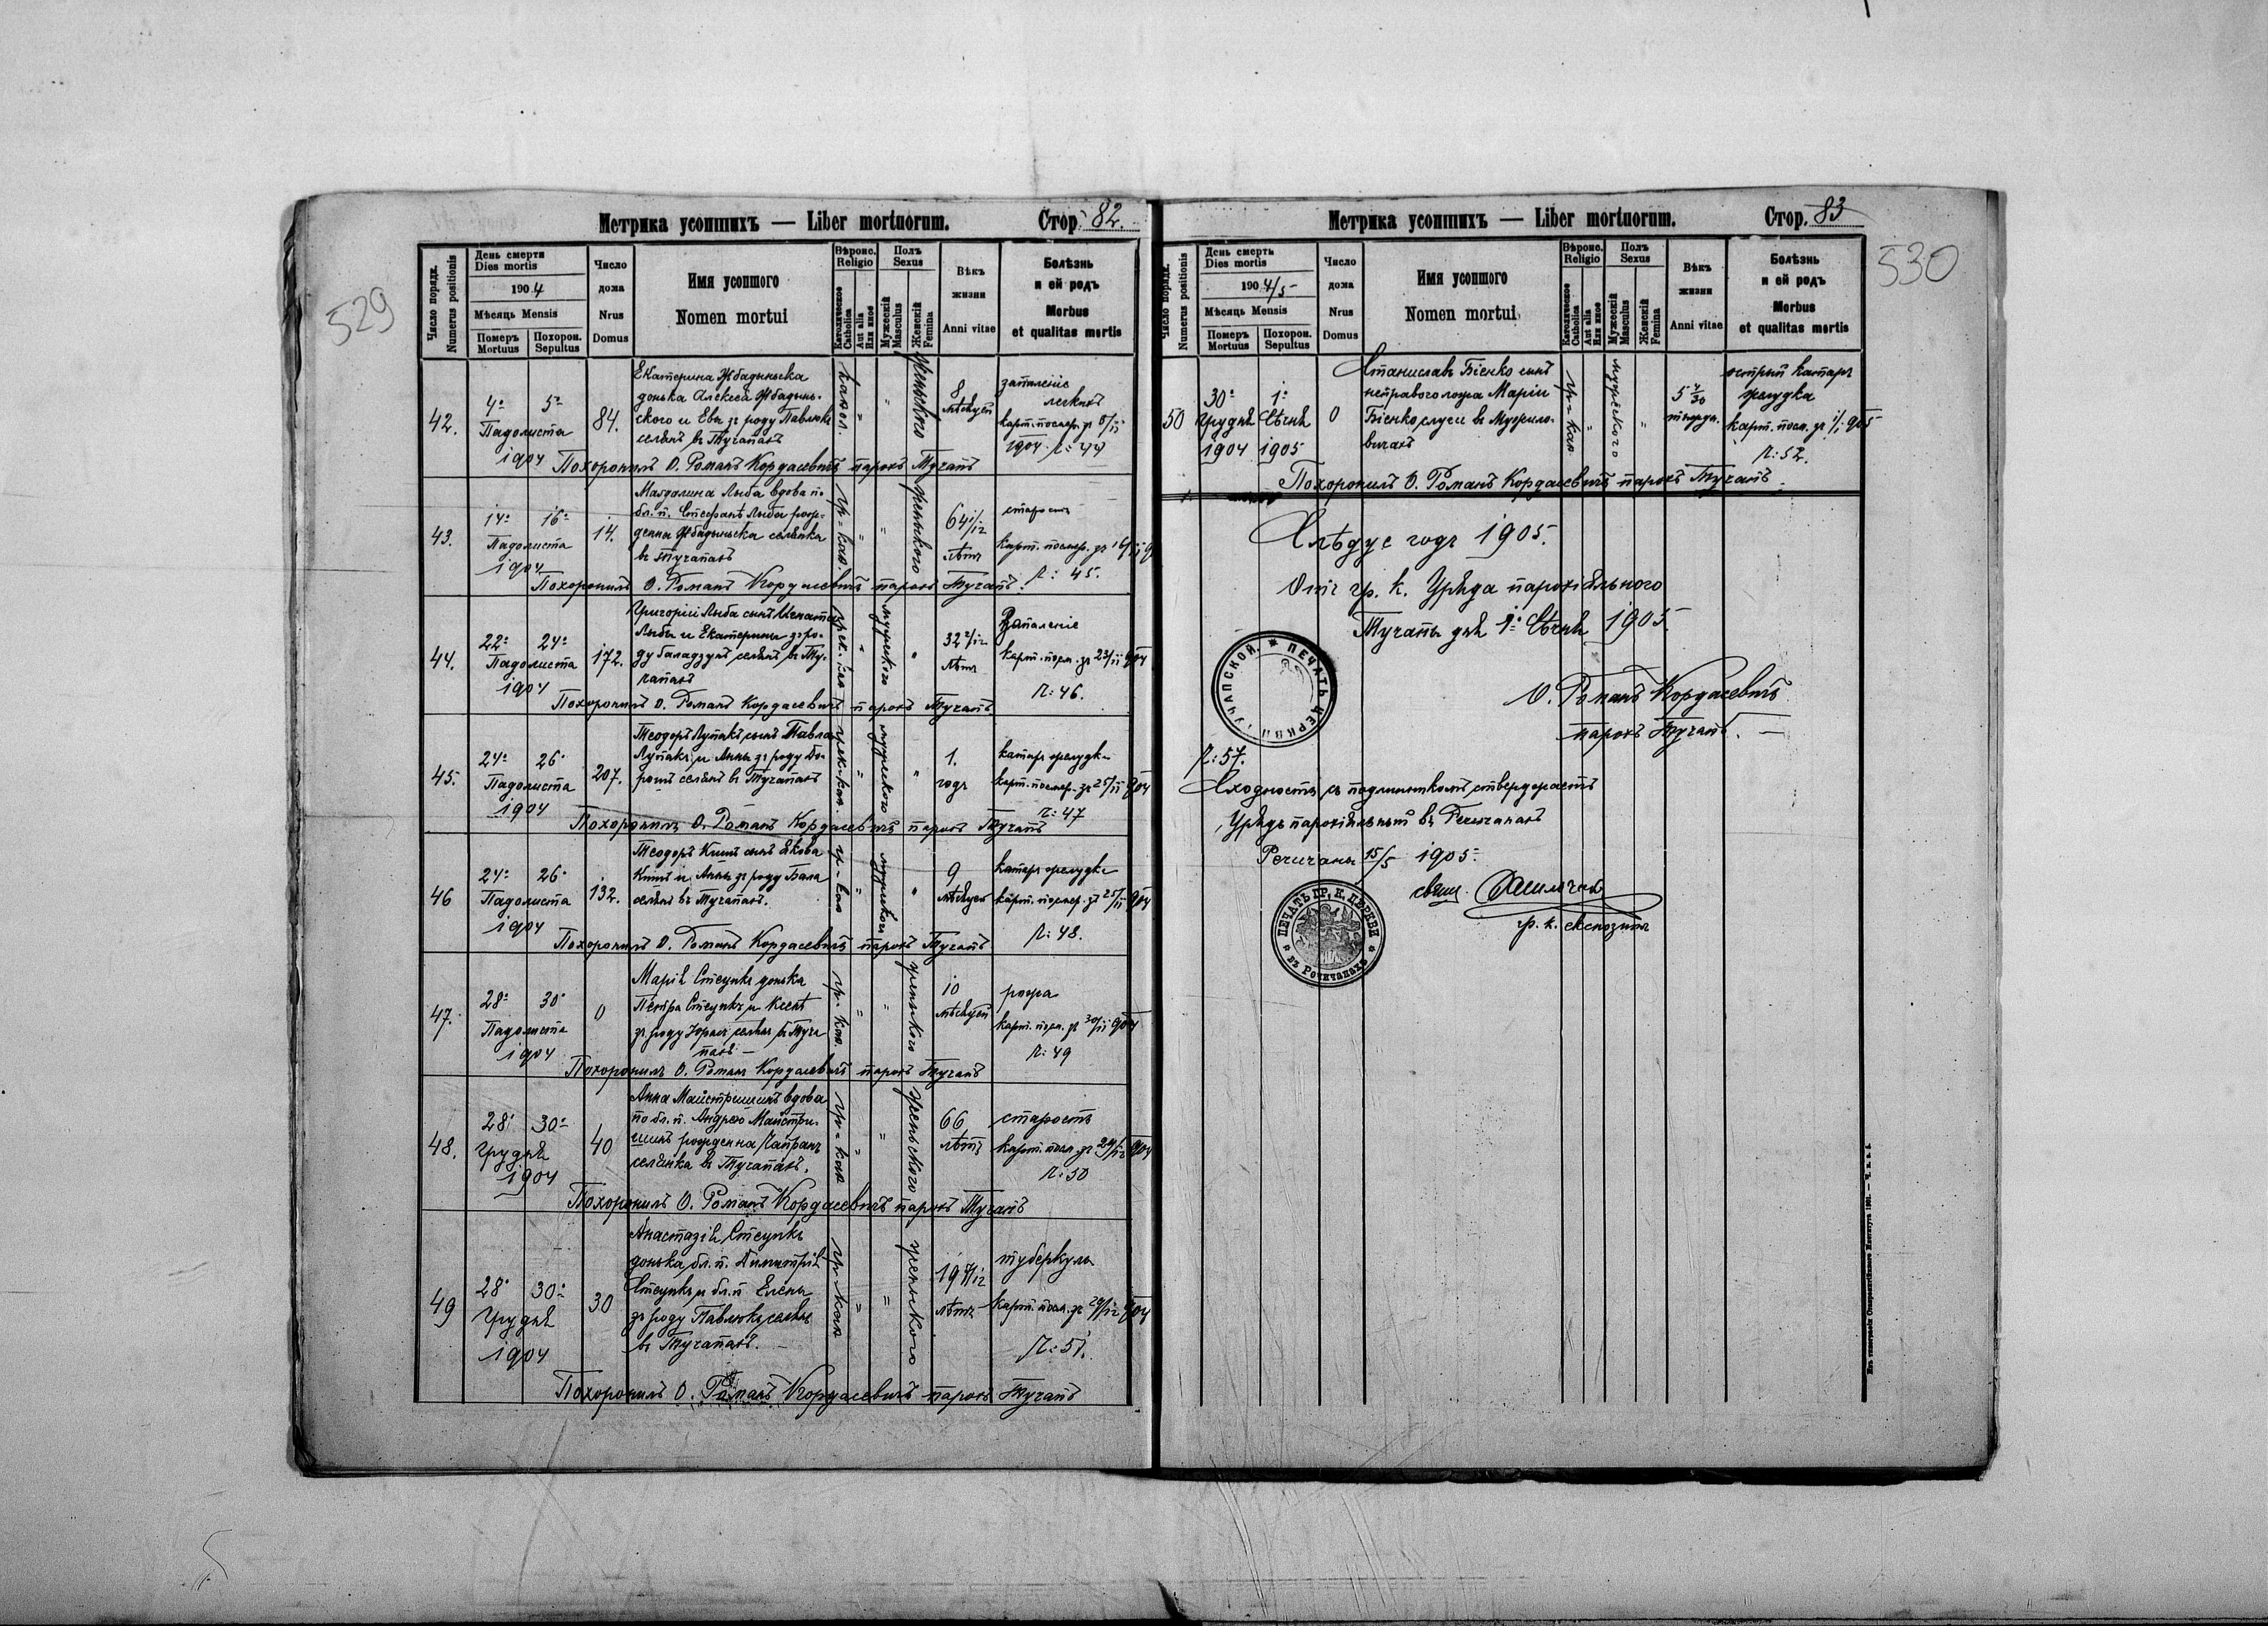 529
Метрика усопшихъ — Liber mortuorum.
Стор. 82.
Число порядк.
Numerus positionis
День смерти
Dies mortis
1904
Мѣсяць Mensis
Померъ
Mortuus
Похорон.
Sepultus
Число
дома
Nrus
Domus
Имя усопшого
Nomen mortui
Вѣроис.
Religio
Католическое
Catholica
Aut alia
Или иное
Полъ
Sexus
Мужескій
Masculus
Женскій
Femina
Вѣкъ
жизни
Anni vitae
Болѣзнь
и ей родъ
Morbus
et qualitas mortis
42.
4
5
Падолиста
1904
84.
Екатерина
донька Алекса
ского и Евы зъ роду Павлюкъ
селянъ въ Тучапахъ
катол.
женьского
8
мѣсяцей
запаленіе
легкихъ
карт. посмер. зъ 5/11
1904 Л: 44
Похоронилъ О. Романъ Кордасевичъ парохъ Тучапъ
43.
14
16
Падолиста
1904
14.
Магдалина Лыба вдова по
бл. п. Стефанѣ Лыба рож-
дена селянка
въ Тучапахъ
гр-кат.
женьского
64 1/12
лѣтъ
старость
карт. посмер. зъ
Л: 45.
Похоронилъ О. Романъ Кордасевичъ парохъ Тучапъ.
44.
22
24
Падолиста
1904
172.
Григорій Лыба сынъ Игната
Лыбы и Екатерины зъ ро-
ду Баладзунъ селянъ въ Ту-
чапахъ
грек. кат
мужеского
32 2/12
лѣтъ
Запаленіе
карт. посм. зъ 23/11 904
Л: 46.
Похоронилъ О. Романъ Кордасевичъ парохъ Тучапъ
45.
24
26
Падолиста
1904
207.
Теодоръ Лупакъ сынъ Павла
Лупакъ и Анны зъ роду До-
рошъ селянъ въ Тучапахъ
грек-кат.
мужеского
1.
годъ
катаръ желудка
карт. посмер. зъ 25/11 904
Л: 47
Похоронилъ О. Романъ Кордасевичъ парохъ Тучапъ
46
24
26
Падолиста
1904
132.
Теодоръ Кишъ сынъ Якова
Кишъ и Анны зъ роду Бала
селянъ въ Тучапахъ.
гр-кат
мужеского
9
мѣсяцей
катаръ желудка
карт. посмер. зъ 25/11 904
Л: 48.
Похоронилъ О. Романъ Кордасевичъ парохъ Тучапъ
47.
28
30
Падолиста
1904
0
Марія Стецикъ донька
Петра Стецикъ и Ксенѣ
зъ роду селянъ въ Туча
пахъ —
гр. кат.
женьского
10
мѣсяцей
рожа
карт. посм. зъ 30/11 904
Л: 49
Похоронилъ О. Романъ Кордасевичъ парохъ Тучапъ
48.
28
30
Грудня
1904
40
Анна Майстришинъ вдова
по бл. п. Андрею Майстри-
шинъ рождена Чапранъ
селянка въ Тучапахъ.
гр-кат
женьского
66
лѣтъ
старость
карт. посм. зъ 29/12 904
Л: 50
Похоронилъ О. Романъ Кордасевичъ парохъ Тучапъ
49
28
30
Грудня
1904
30
Анастазія Стецикъ
донька бл. п. Димитрія
Стецикъ и бл. п. Елены
зъ роду Павлюкъ селянъ
въ Тучапахъ. —
гр кат
женьского
лѣтъ
туберкулы
карт. посм. зъ 29/12 904
Л: 51.
Похоронилъ О. Романъ Кордасевичъ парохъ Тучапъ
530
Метрика усопшихъ — Liber mortuorum.
Стор. 83
Число порядк.
Numerus positionis
День смерть
Dies mortis
1904/5
Мѣсяць Mensis
Померъ
Mortuus
Похорон.
Sepultus
Число
дома
Nrus
Domus
Имя усопшого
Nomen mortui
Вѣроис.
Religio
Католическое
Catholica
Aut alia
Или иное
Полъ
Sexus
Мужескій
Masculus
Женскій
Femina
Вѣкъ
жизни
Anni vitae
Болѣзнь
и ей родъ
Morbus
et qualitas mortis
50
30
Грудня
1904
1
Сѣчня
1905
0
Станиславъ Бѣенко сынъ
неправого ложа Маріи
Бѣенко слуги въ Мужило-
вичахъ
гр-кат
мужеского
острый катаръ
желудка
карт. посм. зъ 1/1 905
Л: 52.
Похоронилъ О. Романъ Кордасевичъ парохъ Тучапъ
Слѣдує годъ 1905.
Отъ гр. к. Уряда парохіяльного
Тучапы дня 1 Сѣчня 1905.
О. Романъ Кордасевичъ
парохъ Тучапъ. —
ПЕЧАТЬ ЦЕРКВИ ТУЧАПСКОЙ
Л: 57.
Сходность съ подлинникомъ ствержаєтъ
Урядъ парохіяльный въ Речичанахъ
Речичаны 15/5 1905
свящ.
гр. к. експозитъ
ПЕЧАТЬ ГР. К. ЦЕРКВИ
въ Речичанахъ